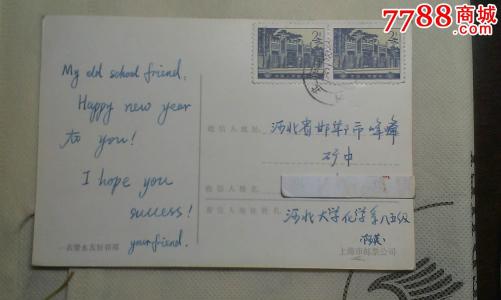 7788商城
.com
My old school friend,
Happy new year
to you!
I hope you
success!
your friend.
收信人地址:
河北省邯郸市峰峰
矿中
收信人姓名
寄信人地址姓名
河北大学化学系八五级
上海市邮票公司